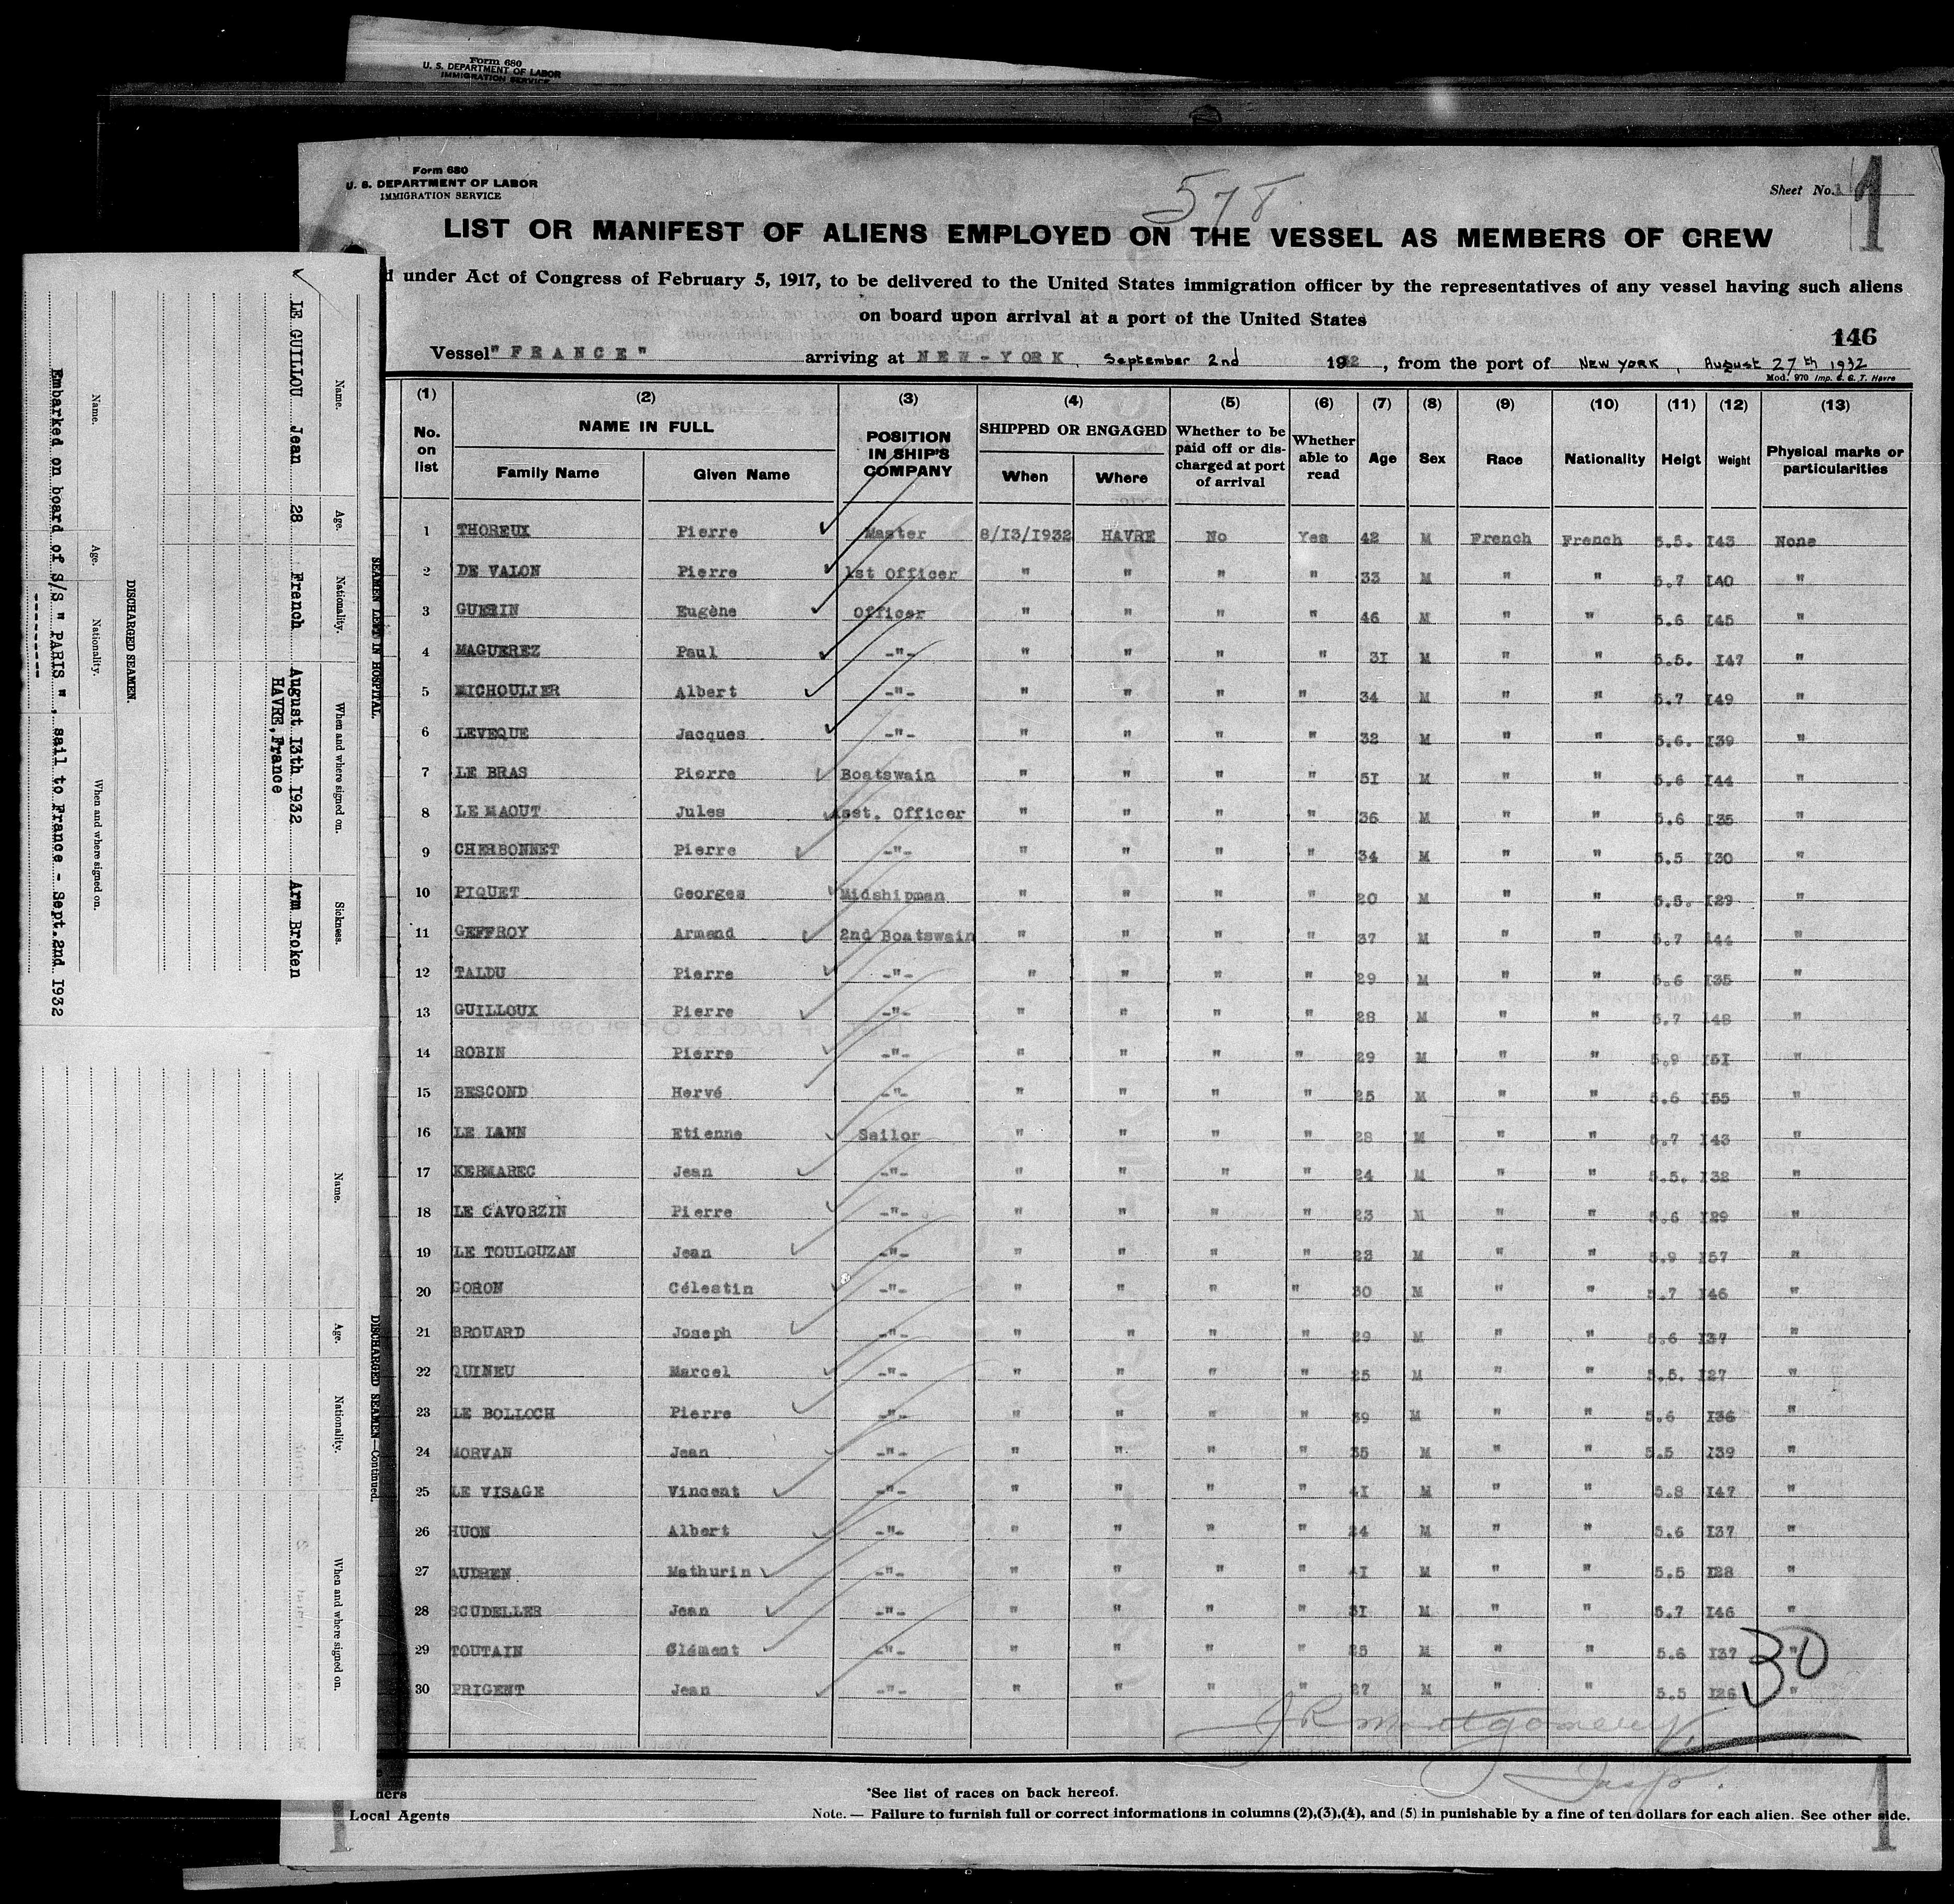 Form 680
U. S. DEPARTMENT OF LABOR
IMMIGRATION SERVICE
Form 680
U. S. DEPARTMENT OF LABOR
IMMIGRATION SERVICE
578
Sheet No. 1
1
LIST OR MANIFEST OF ALIENS EMPLOYED ON THE VESSEL AS MEMBERS OF CREW
d under Act of Congress of February 5, 1917, to be delivered to the United States immigration officer by the representatives of any vessel having such aliens
on board upon arrival at a port of the United States
146
Vessel "FRANCE" arriving at NEW-YORK, September 2nd 1932, from the port of NEW YORK, August 27th 1932
Mod. 970 Imp. G. G. T. Havre
(1) (2) (3) (4) (5) (6) (7) (8) (9) (10) (11) (12) (13)
No. on list NAME IN FULL Family Name Given Name POSITION IN SHIP'S COMPANY SHIPPED OR ENGAGED When Where Whether to be paid off or discharged at port of arrival Whether able to read Age Sex Race Nationality Heigt Weight Physical marks or particularities
1 THOREUX Pierre Master 8/I3/I932 HAVRE No Yes 42 M French French 5.5. I43 None
2 DE VALON Pierre 1st Officer " " " " 33 M " " 5.7 I40 "
3 GUERIN Eugène Officer " " " " 46 M " " 5.6 I45 "
4 MAGUEREZ Paul -"- " " " " 3I M " " 5.5. I47 "
5 MICHOULIER Albert -"- " " " " 34 M " " 5.7 I49 "
6 LEVEQUE Jacques -"- " " " " 32 M " " 5.6. I39 "
7 LE BRAS Pierre Boatswain " " " " 5I M " " 5.6 I44 "
8 LE MAOUT Jules Asst. Officer " " " " 36 M " " 5.6 I35 "
9 CHERBONNET Pierre -"- " " " " 34 M " " 5.5 I30 "
10 PIQUET Georges Midshipman " " " " 20 M " " 5.5. I29 "
11 GEFFROY Armand 2nd Boatswain " " " " 37 M " " 5.7 I44 "
12 TALDU Pierre -"- " " " " 29 M " " 5.6 I35 "
13 GUILLOUX Pierre -"- " " " " 28 M " " 5.7 I48 "
14 ROBIN Pierre -"- " " " " 29 M " " 5.9 I5I "
15 BESCOND Hervé -"- " " " " 25 M " " 5.6 I55 "
16 LE IANN Etienne Sailor " " " " 28 M " " 5.7 I43 "
17 KERMAREC Jean -"- " " " " 24 M " " 5.5. I32 "
18 LE CAVORZIN Pierre -"- " " " " 23 M " " 5.6 I29 "
19 LE TOULOUZAN Jean -"- " " " " 23 M " " 5.9 I57 "
20 GORON Célestin -"- " " " " 30 M " " 5.7 I46 "
21 BROUARD Joseph -"- " " " " 29 M " " 5.6 I37 "
22 QUINEU Marcel -"- " " " " 25 M " " 5.5. I27 "
23 LE BOLLOCH Pierre -"- " " " " 39 M " " 5.6 I36 "
24 MORVAN Jean -"- " " " " 35 M " " 5.5 I39 "
25 LE VISAGE Vincent -"- " " " " 4I M " " 5.8 I47 "
26 HUON Albert -"- " " " " 24 M " " 5.6 I37 "
27 AUDREN Mathurin -"- " " " " 4I M " " 5.5 I28 "
28 SCUDELLER Jean -"- " " " " 3I M " " 5.7 I46 "
29 TOUTAIN Clément -"- " " " " 25 M " " 5.6 I37 "
30 PRIGENT Jean -"- " " " " 27 M " " 5.5 I26 "
30
J R Montgomery
*See list of races on back hereof.
Local Agents
Note. — Failure to furnish full or correct informations in columns (2),(3),(4), and (5) in punishable by a fine of ten dollars for each alien. See other side.
1
1
SEAMEN LEFT IN HOSPITAL.
Name. Age. Nationality. When and where signed on. Sickness.
LE GUILLOU Jean 28 French August I3th I932 Arm Broken
HAVRE, France
DISCHARGED SEAMEN.
Name. Age. Nationality. When and where signed on.
Embarked on board of S/S " PARIS ", sail to France - Sept. 2nd I932
DISCHARGED SEAMEN—Continued.
Name. Age. Nationality. When and where signed on.